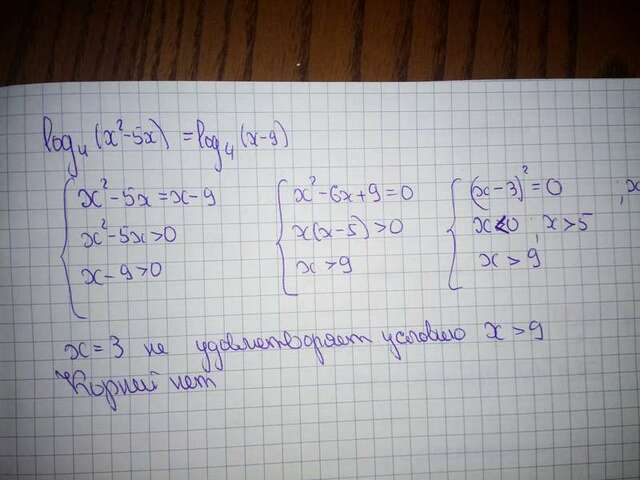 log₄ (x²-5x) = log₄ (x-9)
{ x²-5x = x-9 { x²-6x+9=0 { (x-3)²=0
x²-5x>0 x(x-5)>0 x<0, x>5
x-9>0 x>9 x>9
x=3 не удовлетворяет условию x>9
Корней нет